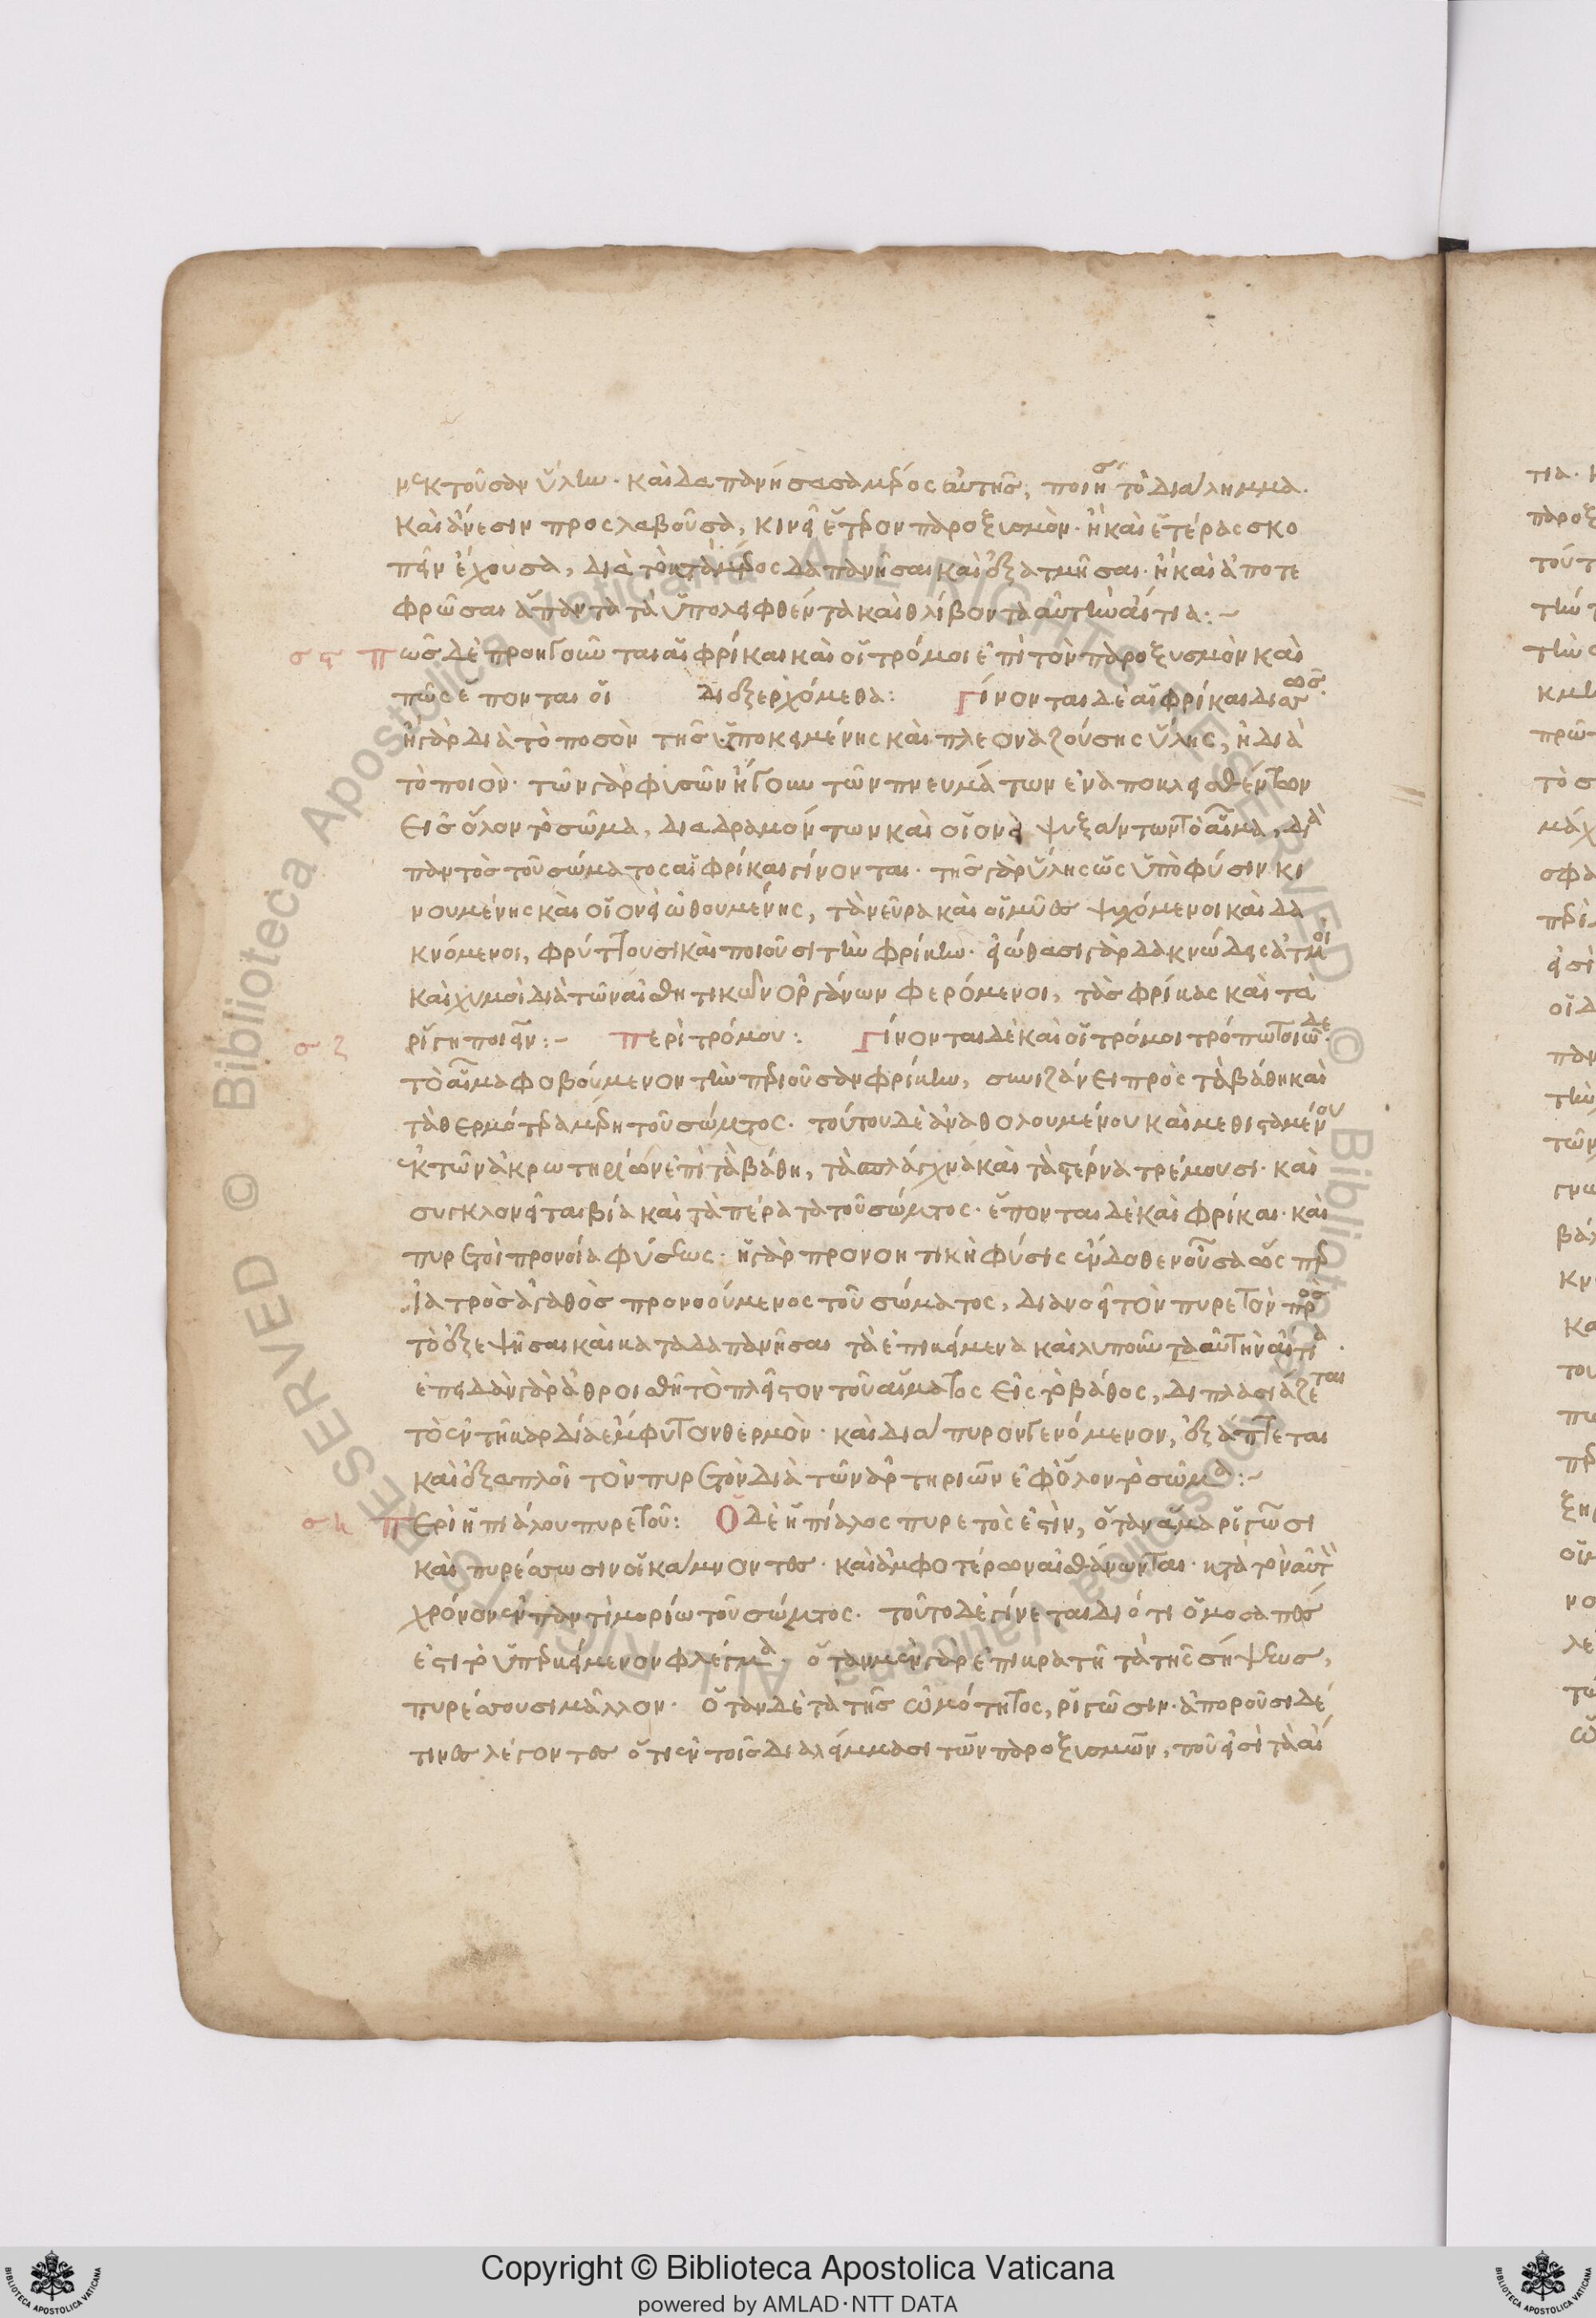 νεκτοῦσαν ὕλην· καὶ δαπανήσασα μέρος αὐτῆς, ποιήσει τὸ διάλημμα.
καὶ ἄνεσιν προσλαβοῦσα, κινεῖ ἕτερον παροξισμὸν· ἢ καὶ ἑτέρας σκο
πὸν ἔχουσα, διὰ τὸ κατὰ μέρος δαπανῆσαι καὶ ἐξατμῆσαι· ἢ καὶ ἀποτε
φρῶσαι ἅπαντα τὰ ὑπολειφθέντα καὶ θλίβοντα αὐτὴν αἴτια:~
σς πῶς δὲ προηγοῦνται αἱ φρίκαι καὶ οἱ τρόμοι ἐπὶ τὸν παροξυσμὸν καὶ
πῶς ἕπονται οἱ διεξερχόμεθα: Γίνονται δὲ αἱ φρίκαι
ἢ γὰρ διὰ τὸ ποσὸν τῆς ὑποκειμένης καὶ πλεοναζούσης ὕλης, ἢ διὰ
τὸ ποιὸν· τῶν γὰρ φυσῶν ἤγουν τῶν πνευμάτων ἐναποκλεισθέντων
εἰς ὅλον τὸ σῶμα, διαδραμόντων καὶ οἱονεὶ ψυξάντων τὸ αἷμα, διὰ
παντὸς τοῦ σώματος αἱ φρίκαι γίνονται· τῆς γὰρ ὕλης ὡς ὑπὸ φύσιν κι
νουμένης καὶ οἱονεὶ ὠθουμένης, τὰ νεῦρα καὶ οἱ μῦες ψυχόμενοι καὶ δα
κνόμενοι, φρύττουσι καὶ ποιοῦσι τὴν φρίκην· εἰώθασι γὰρ δακνώδεις ἀτμοὶ
καὶ χυμοὶ διὰ τῶν αἰσθητικῶν ὀργάνων φερόμενοι, τὰς φρίκας καὶ τὰ
σζ ρίγη ποιεῖν:~ Περὶ τρόμου: Γίνονται δὲ καὶ οἱ τρόμοι τρόπω τοιῶδε·
τὸ αἷμα φοβούμενον τὴν περιοῦσαν φρίκην, συνιζάνει πρὸς τὰ βάθη καὶ
τὰ θερμότερα μέρη τοῦ σώματος· τούτου δὲ ἀναθολουμένου καὶ μεθισταμένου
ἐκ τῶν ἀκρωτηρίων ἐπὶ τὰ βάθη, τὰ σπλάγχνα καὶ τὰ στέρνα τρέμουσι· καὶ
συγκλονεῖται βία καὶ τὰ πέρατα τοῦ σώματος· ἕπονται δὲ καὶ φρίκαι· καὶ
πυρετοὶ προνοία φύσεως· ἡ γὰρ προνοητικὴ φύσις ἔνδοθεν οὖσα ὥσπερ
ἰατρὸς ἀγαθὸς προνοούμενος τοῦ σώματος, διανοεῖ τὸν πυρετὸν πρὸς
τὸ ἐξεψῆσαι καὶ καταδαπανῆσαι τὰ ἐπικείμενα καὶ λυποῦντα αὐτὴν αἴτια·
ἐπειδὰν γὰρ ἀθροισθῆ τὸ πλεῖστον τοῦ αἵματος εἰς τὸ βάθος, διπλασιάζεται
τὸ ἐν τῆ καρδία ἔμφυτον θερμὸν· καὶ διάπυρον γενόμενον, ἐξάπτεται
καὶ ἐξαπλοῖ τὸν πυρετὸν διὰ τῶν ἀρτηριῶν ἐφ' ὅλον τὸ σῶμα:~
ση Περὶ ἠπιάλου πυρετοῦ: Ὁ δὲ ἠπίαλος πυρετὸς ἐστὶν, ὅταν ἅμα ριγῶσι
καὶ πυρέσσωσιν οἱ κάμνοντες· καὶ ἀμφοτέρων αἰσθάνωνται· κατὰ τὸν αὐτὸν
χρόνον ἐν παντὶ μορίω τοῦ σώματος. τοῦτο δὲ γίνεται διότι ὁμοσαπὲς
ἐστὶ τὸ ὑπερκείμενον φλέγμα· ὅταν μὲν γὰρ ἐπικρατῆ τὰ τῆς σήψεως,
πυρέσσουσι μᾶλλον· ὅταν δὲ τὰ τῆς ὠμότητος, ριγῶσιν· ἀποροῦσι δέ
τινες λέγοντες ὅτι ἐν τοῖς διαλείμμασι τῶν παροξισμῶν, ποῦ εἰσὶ τὰ αἴ
Copyright © Biblioteca Apostolica Vaticana
powered by AMLAD·NTT DATA